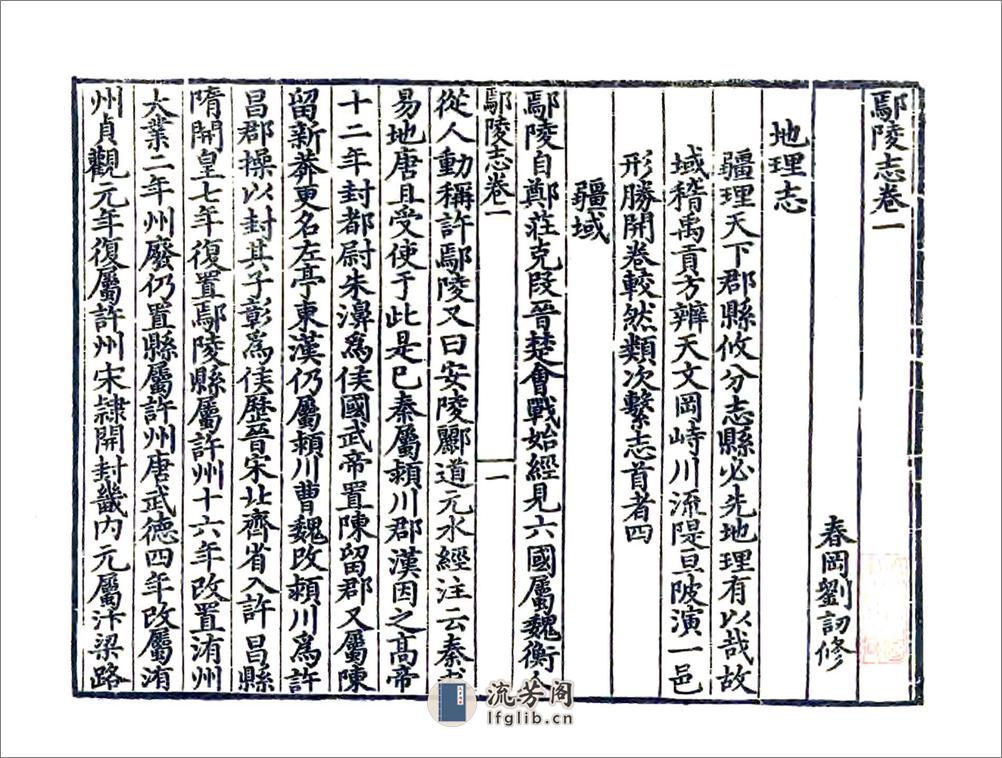 鄢陵志卷一
春岡劉訒修
地理志
疆理天下郡縣攸分志縣必先地理有以哉故
域稽禹貢方辨天文岡峙川流隄亘陂演一邑
形勝開卷較然類次繫志首者四
疆域
鄢陵自鄭莊克段晉楚會戰始經見六國屬魏衡人
鄢陵志卷一
一
從人動稱許鄢陵又曰安陵酈道元水經注云秦
易地唐且受使于此是已秦屬頴川郡漢因之高帝
十二年封都尉朱濞爲侯國武帝置陳留郡又屬陳
留新莽更名左亭東漢仍屬頴川曹魏改頴川爲許
昌郡操以封其子彰爲侯歷晉宋北齊省入許昌縣
隋開皇七年復置鄢陵縣屬許州十六年改置洧州
大業二年州廢仍置縣屬許州唐武德四年改屬洧
州貞觀元年復屬許州宋隸開封畿内元屬汴梁路
流芳阁
lfglib.cn